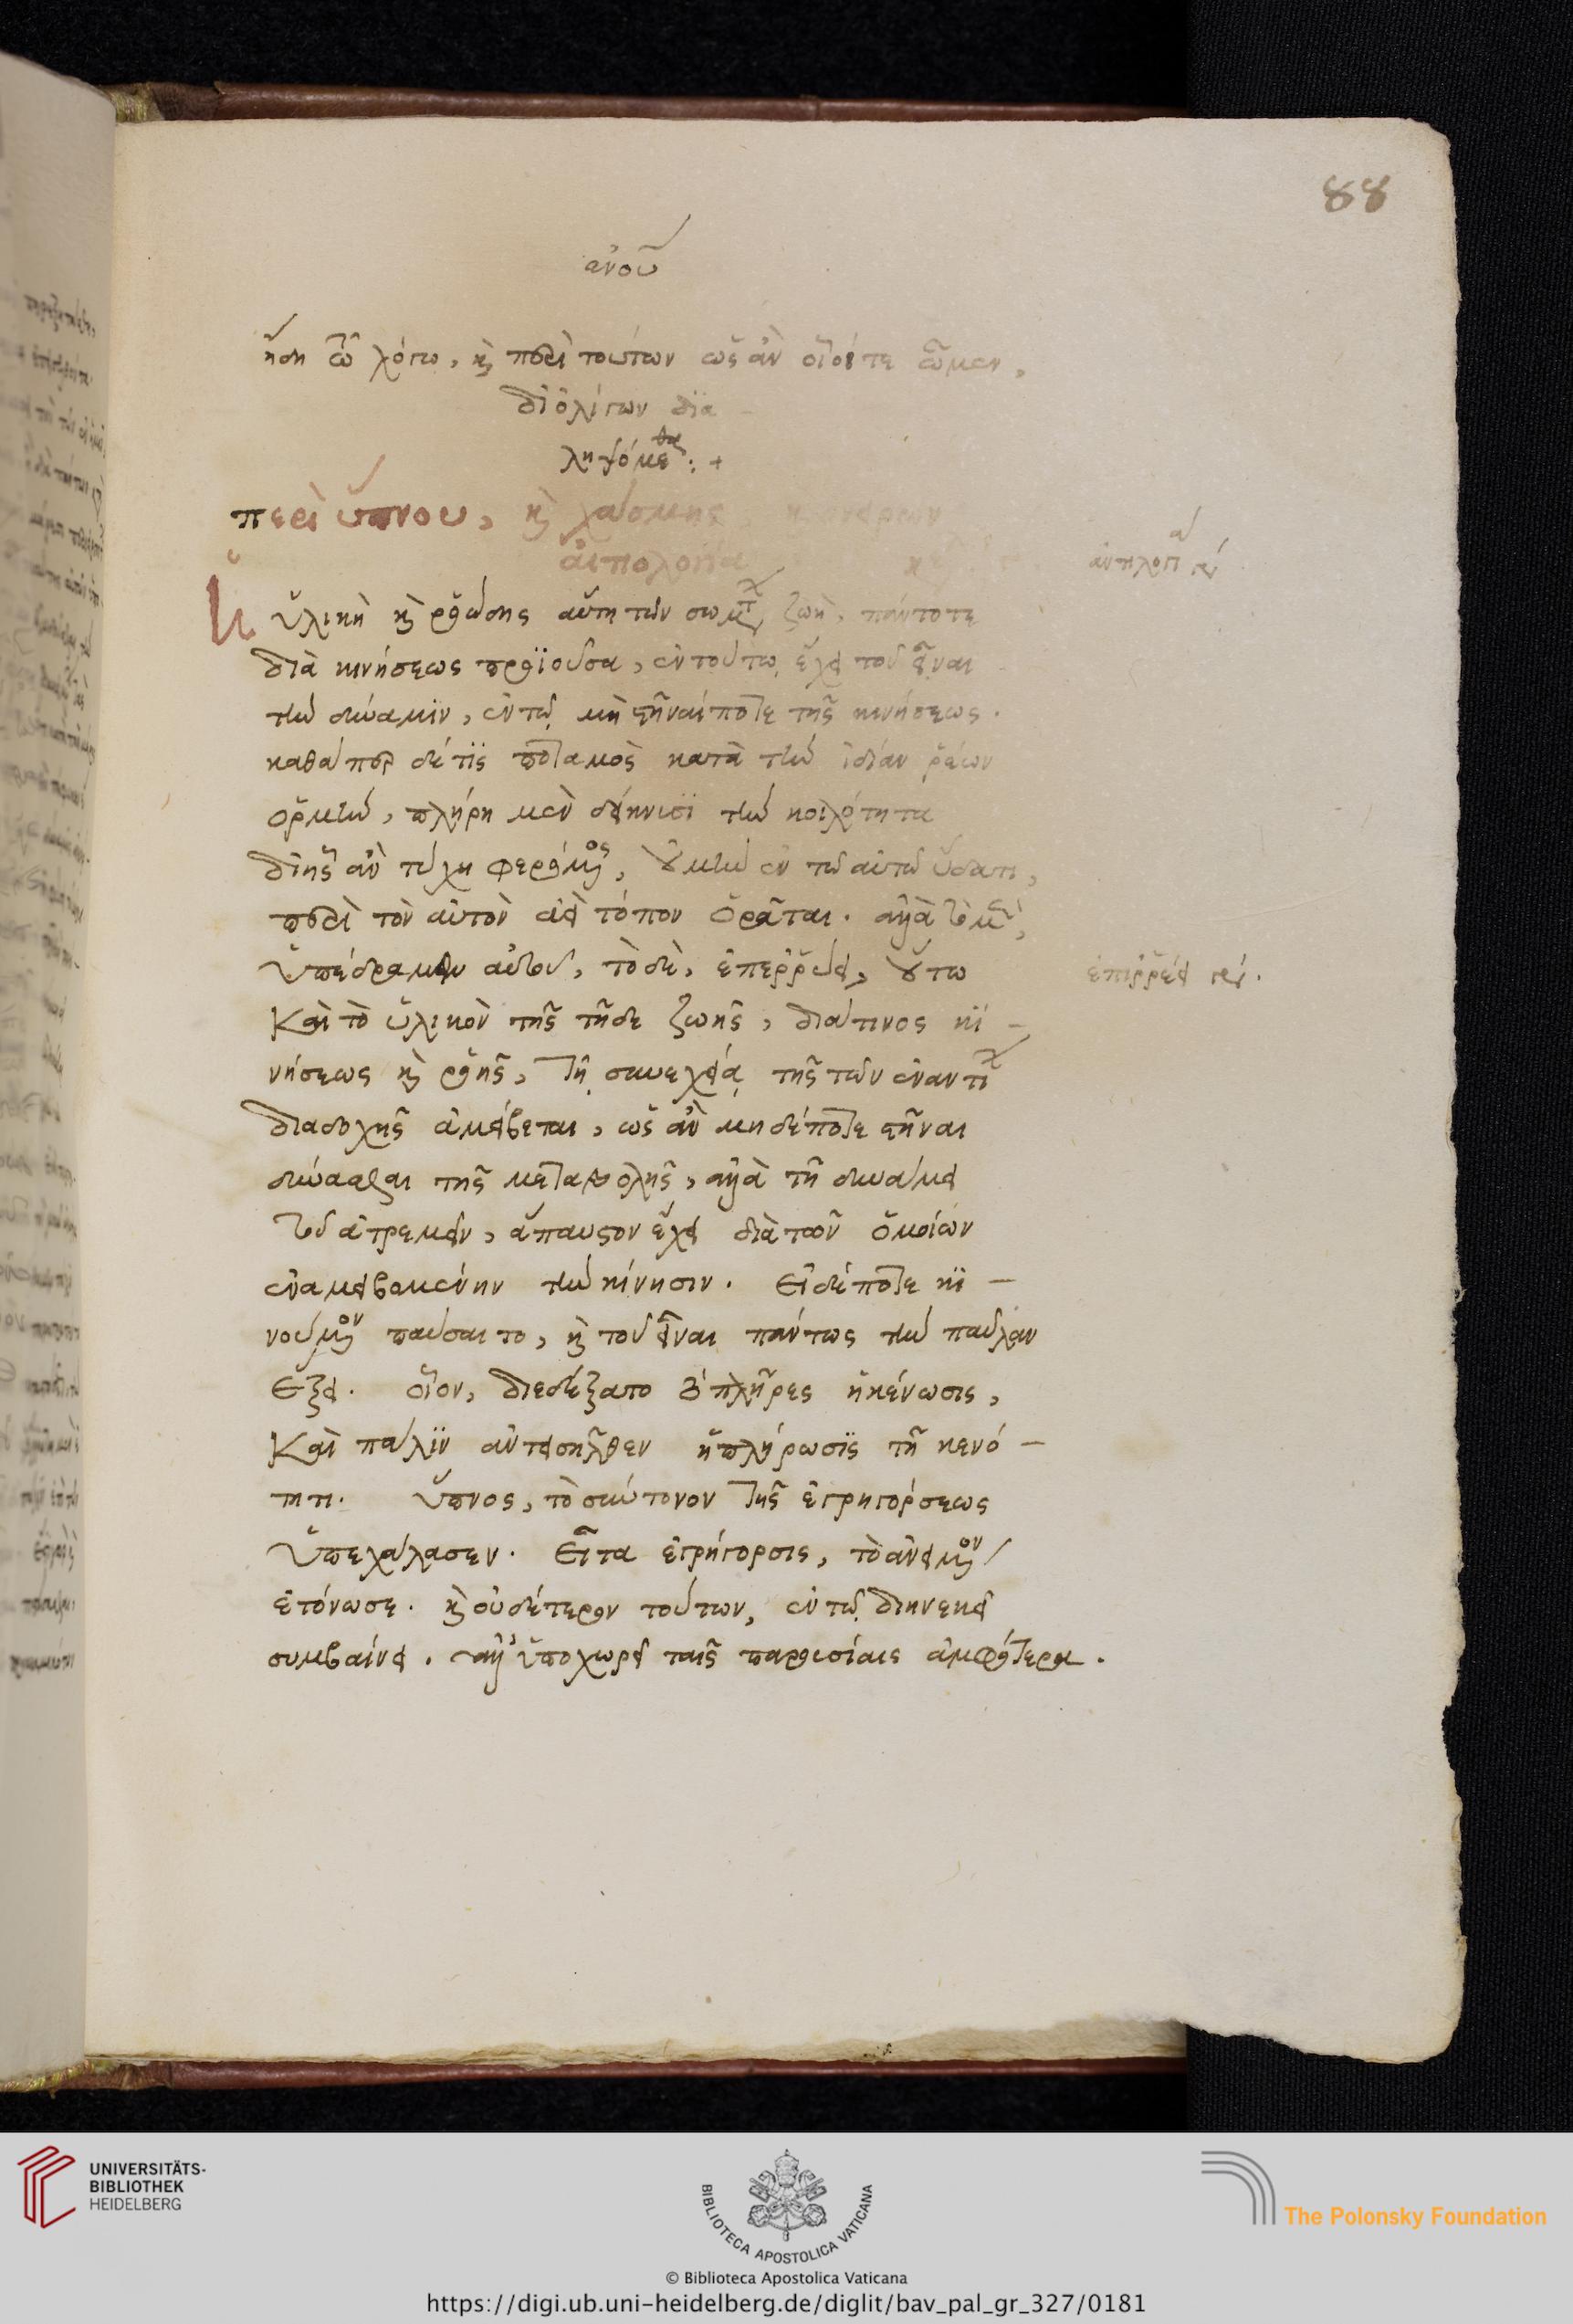 88
ἀνου
ἤδη τῶ λόγω, κ περὶ τούτων ὡς ἂν οἷοί τε ὦμεν,
δι ὀλίγων δια
ληψόμεθα : +
περὶ ὕπνου, κ χάσμης κ ὀνείρων
αἰτιολογία
Η ὑλικὴ κ ῥοώδης αὕτη τῶν σωμάτων ζωὴ, πάντοτε
διὰ κινήσεως προϊοῦσα, ἐν τούτω ἔχει τοῦ εἶναι
τὴν δύναμιν, ἐν τῶ μὴ στῆναί ποτε τῆς κινήσεως.
καθάπερ δέ τις ποταμὸς κατὰ τὴν ἰδίαν ῥέων
ὁρμὴν, πλήρη μὲν δείκνυσι τὴν κοιλότητα
δι ἧς ἂν τύχη φερόμενος, οὐ μὴν ἐν τῶ αὐτῶ ὕδατι,
περὶ τὸν αὐτὸν ἀεὶ τόπον ὁρᾶται. ἀλλὰ τὸ μὲν,
ὑπέδραμεν αὐτοῦ, τὸ δὲ, ἐπερρύει, οὕτω
ἐπιρρέει
Καὶ τὸ ὑλικὸν τῆς τῆδε ζωῆς, διά τινος κι-
νήσεως κ ῥοῆς, τῆ συνεχεία τῆς τῶν ἐναντίων
διαδοχῆς ἀμείβεται, ὡς ἂν μηδέποτε στῆναι
δύνασθαι τῆς μεταβολῆς, ἀλλὰ τῆ δυνάμει
τοῦ ἀτρεμεῖν, ἄπαυστον ἔχει διὰ τῶν ὁμοίων
ἐναμειβομένην τὴν κίνησιν. Εἰ δέ ποτε κι-
νούμενον παύσαιτο, κ τοῦ εἶναι πάντως τὴν παῦλαν
ἕξει. οἷον, διεδέξατο τὸ πλῆρες ἡ κένωσις,
Καὶ πάλιν ἀντεισῆλθεν ἡ πλήρωσις τῆ κενό-
τητι. ὕπνος, τὸ σύντονον τῆς ἐγρηγόρσεως
ὑπεχάλασεν. Εἶτα ἐγρήγορσις, τὸ ἀνειμένον
ἐτόνωσε. κ οὐδέτερον τούτων, ἐν τῶ διηνεκεῖ
συμβαίνει. ἀλλ' ὑποχωρεῖ ταῖς παρουσίαις ἀμφότερα.
UNIVERSITÄTS-
BIBLIOTHEK
HEIDELBERG
BIBLIOTECA APOSTOLICA VATICANA
The Polonsky Foundation
© Biblioteca Apostolica Vaticana
https://digi.ub.uni-heidelberg.de/diglit/bav_pal_gr_327/0181